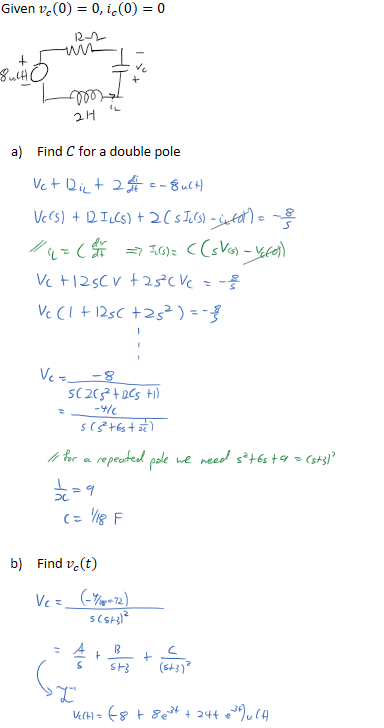 Given v_c(0) = 0, i_c(0) = 0
12Ω
+ −
8u(t) v_c
− +
i_L
2H
a) Find C for a double pole
V_c + 12i_L + 2 di/dt = -8u(t)
V_c(s) + 12 I_L(s) + 2(s I_L(s) - i_L(0)) = -8/s
// i_L = C dv/dt ⇒ I_L(s) = C(sV(s) - V_c(0))
V_c + 12sC V + 2s²C V_c = -8/s
V_c(1 + 12sC + 2s²) = -8/s
V_c = -8 / s(2Cs² + 12Cs + 1)
= -4/C / s(s² + 6s + 1/2C)
// for a repeated pole we need s² + 6s + 9 = (s+3)²
1/2C = 9
C = 1/18 F
b) Find v_c(t)
V_c = (-4/(1/18) = -72) / s(s+3)²
= A/s + B/s+3 + C/(s+3)²
ℒ⁻¹
V_c(t) = (-8 + 8e^-3t + 24t e^-3t) u(t)